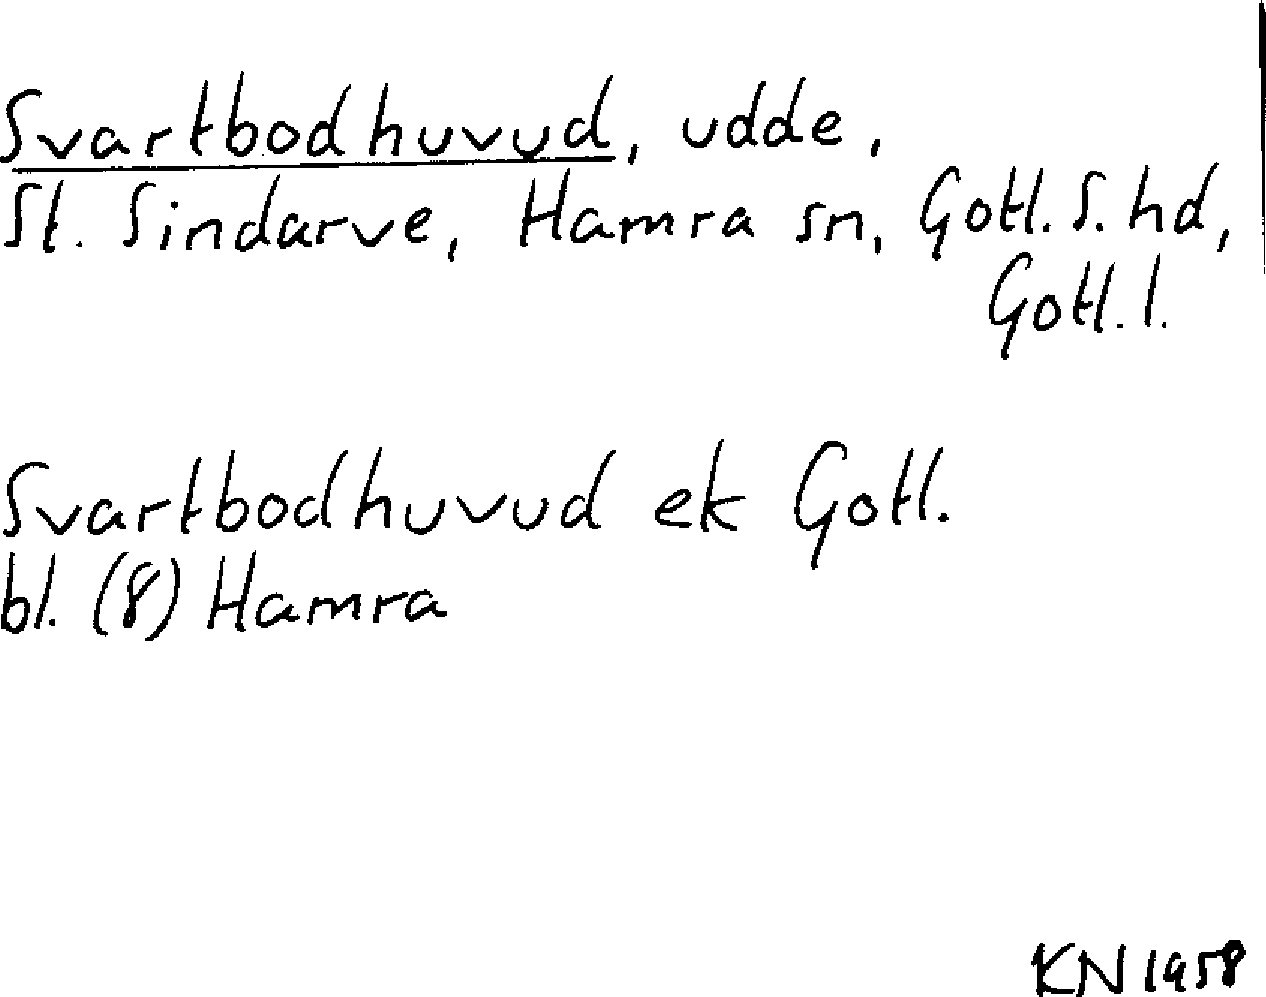 Svartbodhuvud, udde,
St. Sindarve, Hamra sn, Gotl. S. hd,
Gotl. l.
Svartbodhuvud ek Gotl.
bl. (8) Hamra
KN 1958